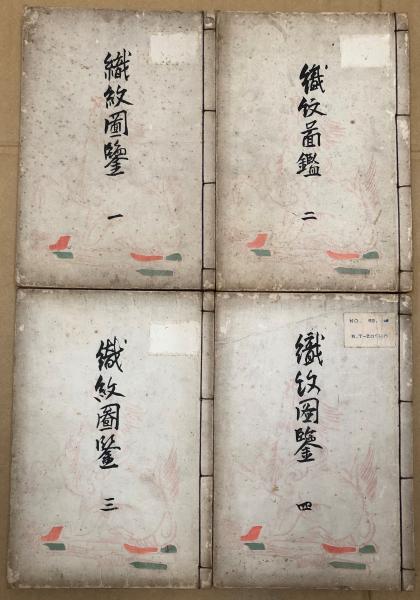 織紋圖鑒
一
織紋啚鑑
二
織紋圖鑒
三
織紋圖鑒
四
NO.